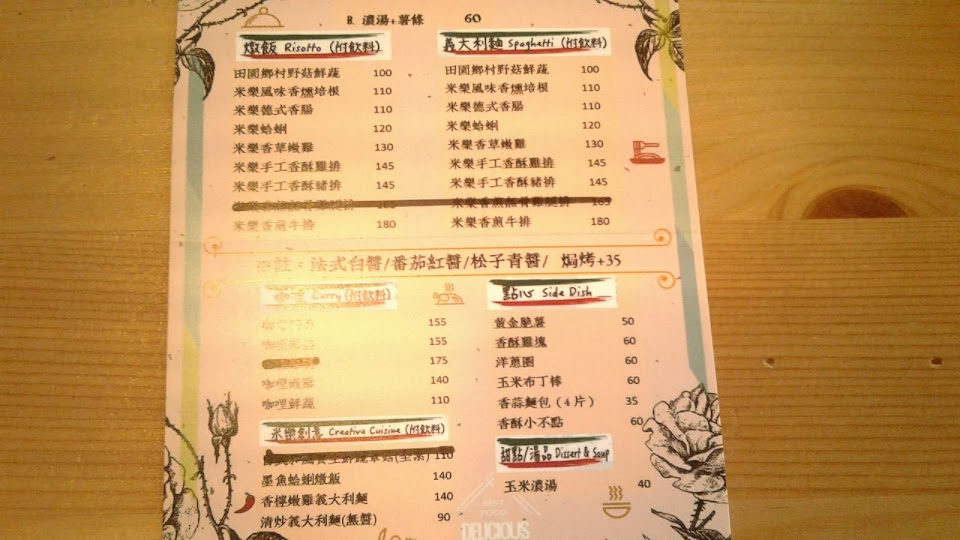 B. 濃湯+薯條 60
燉飯 Risotto (附飲料)
田園鄉村野菇鮮蔬 100
米樂風味香燻培根 110
米樂德式香腸 110
米樂蛤蜊 120
米樂香草嫩雞 130
米樂手工香酥雞排 145
米樂手工香酥豬排 145
米樂香煎牛排 180
義大利麵 Spaghetti (附飲料)
田園鄉村野菇鮮蔬 100
米樂風味香燻培根 110
米樂德式香腸 110
米樂蛤蜊 120
米樂香草嫩雞 130
米樂手工香酥雞排 145
米樂手工香酥豬排 145
米樂香煎無骨雞腿排 165
米樂香煎牛排 180
※註：法式白醬/番茄紅醬/松子青醬/ 焗烤+35
咖哩 Curry (附飲料)
咖哩 155
咖哩 155
175
咖哩嫩雞 140
咖哩鮮蔬 110
米樂創意 Creative Cuisine (附飲料)
110
墨魚蛤蜊燉飯 140
香檸嫩雞義大利麵 140
清炒義大利麵(無醬) 90
點心 Side Dish
黃金脆薯 50
香酥雞塊 60
洋蔥圈 60
玉米布丁棒 60
香蒜麵包（4片） 35
香酥小不點 60
甜點/湯品 Dissert & Soup
玉米濃湯 40
BEST FOOD
DELICIOUS